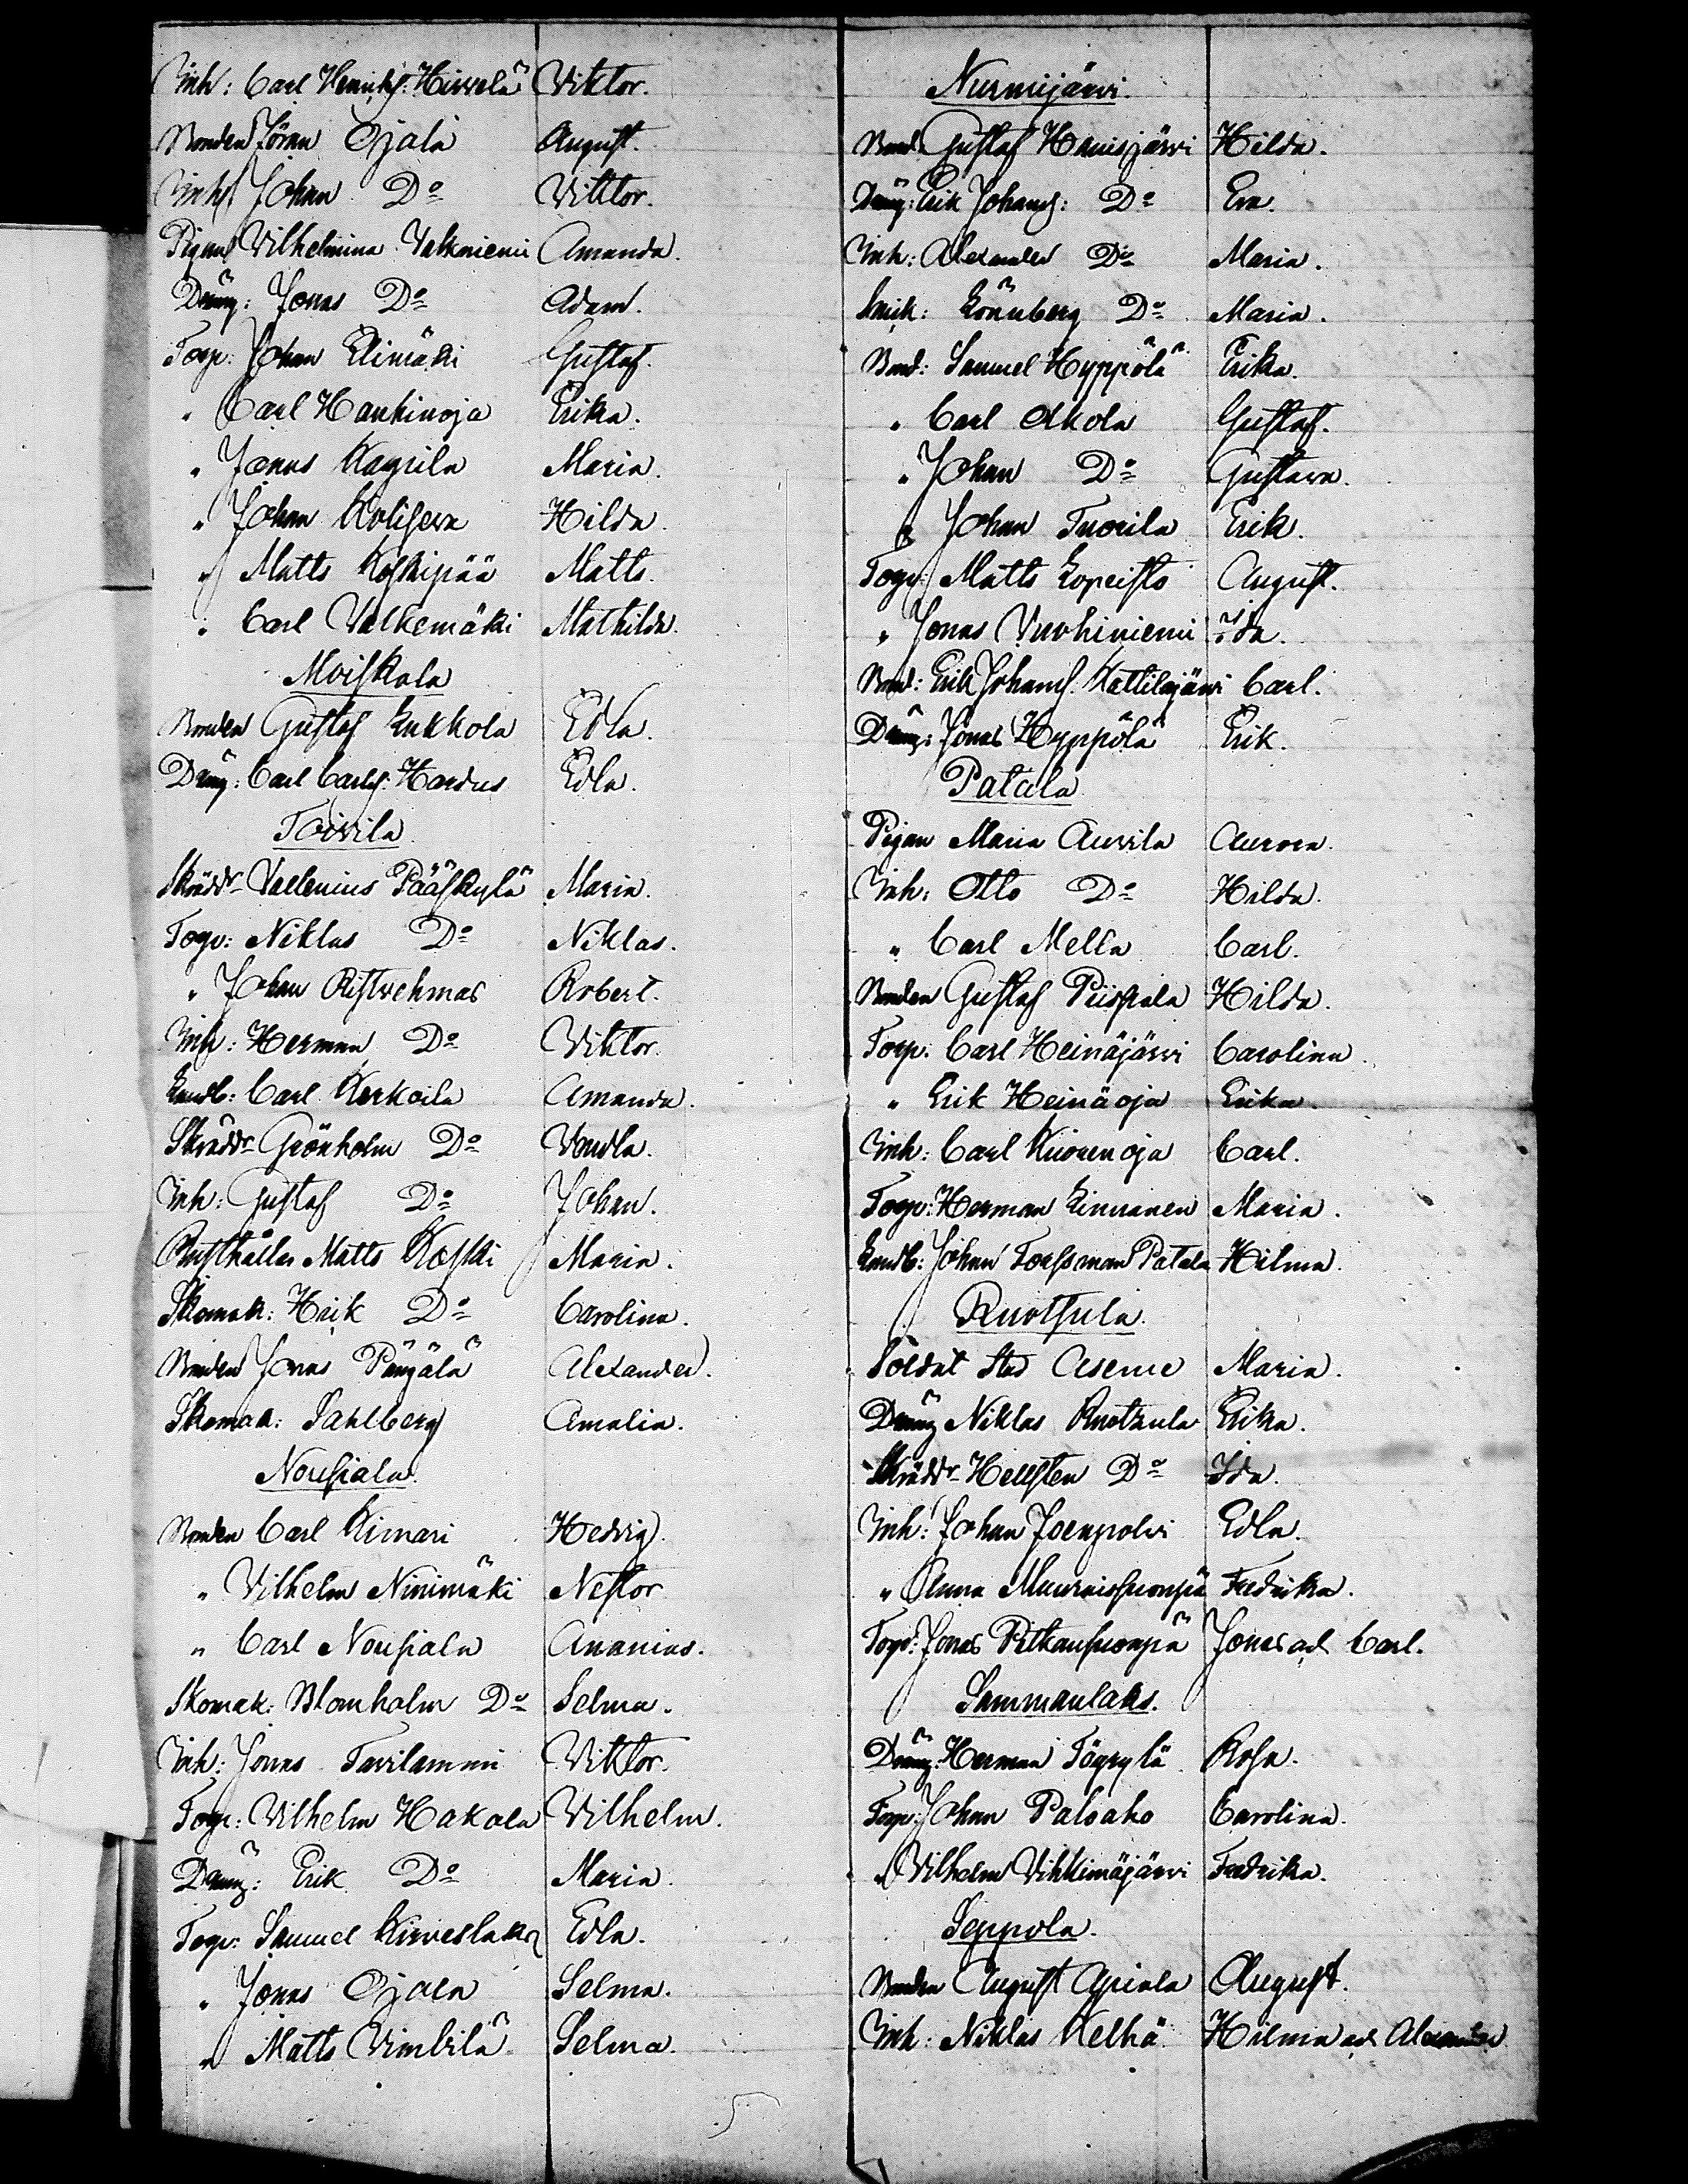 Inh: Carl Henrikſ: Hirvelä Viktor.
Bonden Jöran Ojala August.
Inh Johan Do Viktor.
Pigan Vilhelmina Valkniemi Amanda.
Dräng: Jonas Do Adam.
Torp: Johan Elimäki Gustaf.
" Carl Hankinoja Erika.
" Jonas Kaprila Maria.
" Johan Koliseva Hilda.
" Matts Koskipää Matts.
" Carl Valkemäki Mathilda.
Moiskala
Bonden Gustaf Kukkola Edla.
Dräng: Carl Carlſ: Hardus Edla.
Toivila
Skräddr Vallenius Pääskylä Maria.
Torp: Niklas Do Niklas.
" Johan Ristvehmas Robert.
Inh: Herman Do Viktor.
Landb: Carl Kerkoila Amanda.
Skräddr Grönholm Do Vendla.
Inh: Gustaf Do Johan.
Rusthållar Matts Koski Maria.
Skomak: Henrik Do Carolina.
Bonden Jonas Pängälä Alexander.
Skomak: Sahlberg Amalia.
Nousiala
Bonden Carl Kimari Hedvig.
" Vilhelm Ninimäki Nestor
" Carl Nousiala Ananias.
Skomak: Blomholm Do Selma.
Inh: Jonas Tavilammi Viktor.
Torp: Vilhelm Hakala Vilhelm.
Dräng: Erik Do Maria.
Torp: Samuel Kirveslaks Edla.
" Jonas Ojala Selma.
" Matts Vimbilä Selma.
Nurmijärvi.
Bond: Gustaf Hanisjärvi Hilda.
Dräng: Erik Johanſ: Do Eva.
Inh: Alexander Do Maria.
Snick: Lönnberg Do Maria.
Bond: Samuel Hyppölä Erika.
" Carl Akola Gustaf.
" Johan Do Gustava.
" Johan Tuorila Erik.
Torp: Matts Lopeisto August.
" Jonas Vuohiniemi Ida.
Bond: Erik Johanſ: Kattilajärvi Carl.
Dräng: Jonas Hyppölä Erik.
Patala
Pigan Maria Auvila Aurora.
Inh: Otto Do Hilda.
" Carl Mella Carl.
Bonden Gustaf Piispala Hilda.
Torp: Carl Heinäjärvi Carolina.
" Erik Heinäoja Erika.
Inh: Carl Kuorenoja Carl.
Torp: Herman Linnanen Maria.
Landb: Johan Forssman Patala Hilma.
Ruotsula.
Soldat Aseme Maria.
Dräng Niklas Ruotzula Erika.
Skräddr Hellsten Do Ida.
Inh: Johan Joenpolvi Edla.
" Anna Fredrika.
Torp: Jonas Pitkansuonpä Jonas och Carl.
Sammanlaks.
Dräng: Herman Töyrylä Rosa.
Torp: Johan Paloaho Carolina.
" Vilhelm Vihkimäjärvi Fredrika.
Seppola.
Bonden August Apiala August.
Inh: Niklas Kelhä Hilma och Alexander